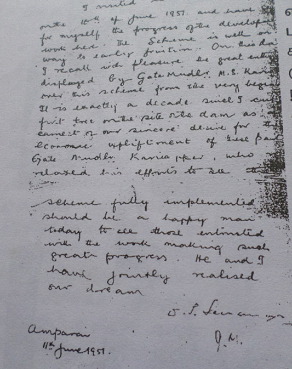 I visited
on the 10th of June 1951. and have
for myself the progress of the develop
work here. The Scheme is well on
way to early fruition. On this
I recall with pleasure the great
displayed by Gate Mudlr. M.S. Kari
over this scheme from the very begin
It is exactly a decade since I cut
first tree on the site dam as
earnest of our sincere desire for the
economic upliftment of these
Gate Mudlr Kariapper, who
relaxed his efforts to see the
scheme fully implemented
should be a happy man
today to see those entrusted
with the work making such
great progress. He and I
have jointly realised
our dream
Amparai
11th June 1951.